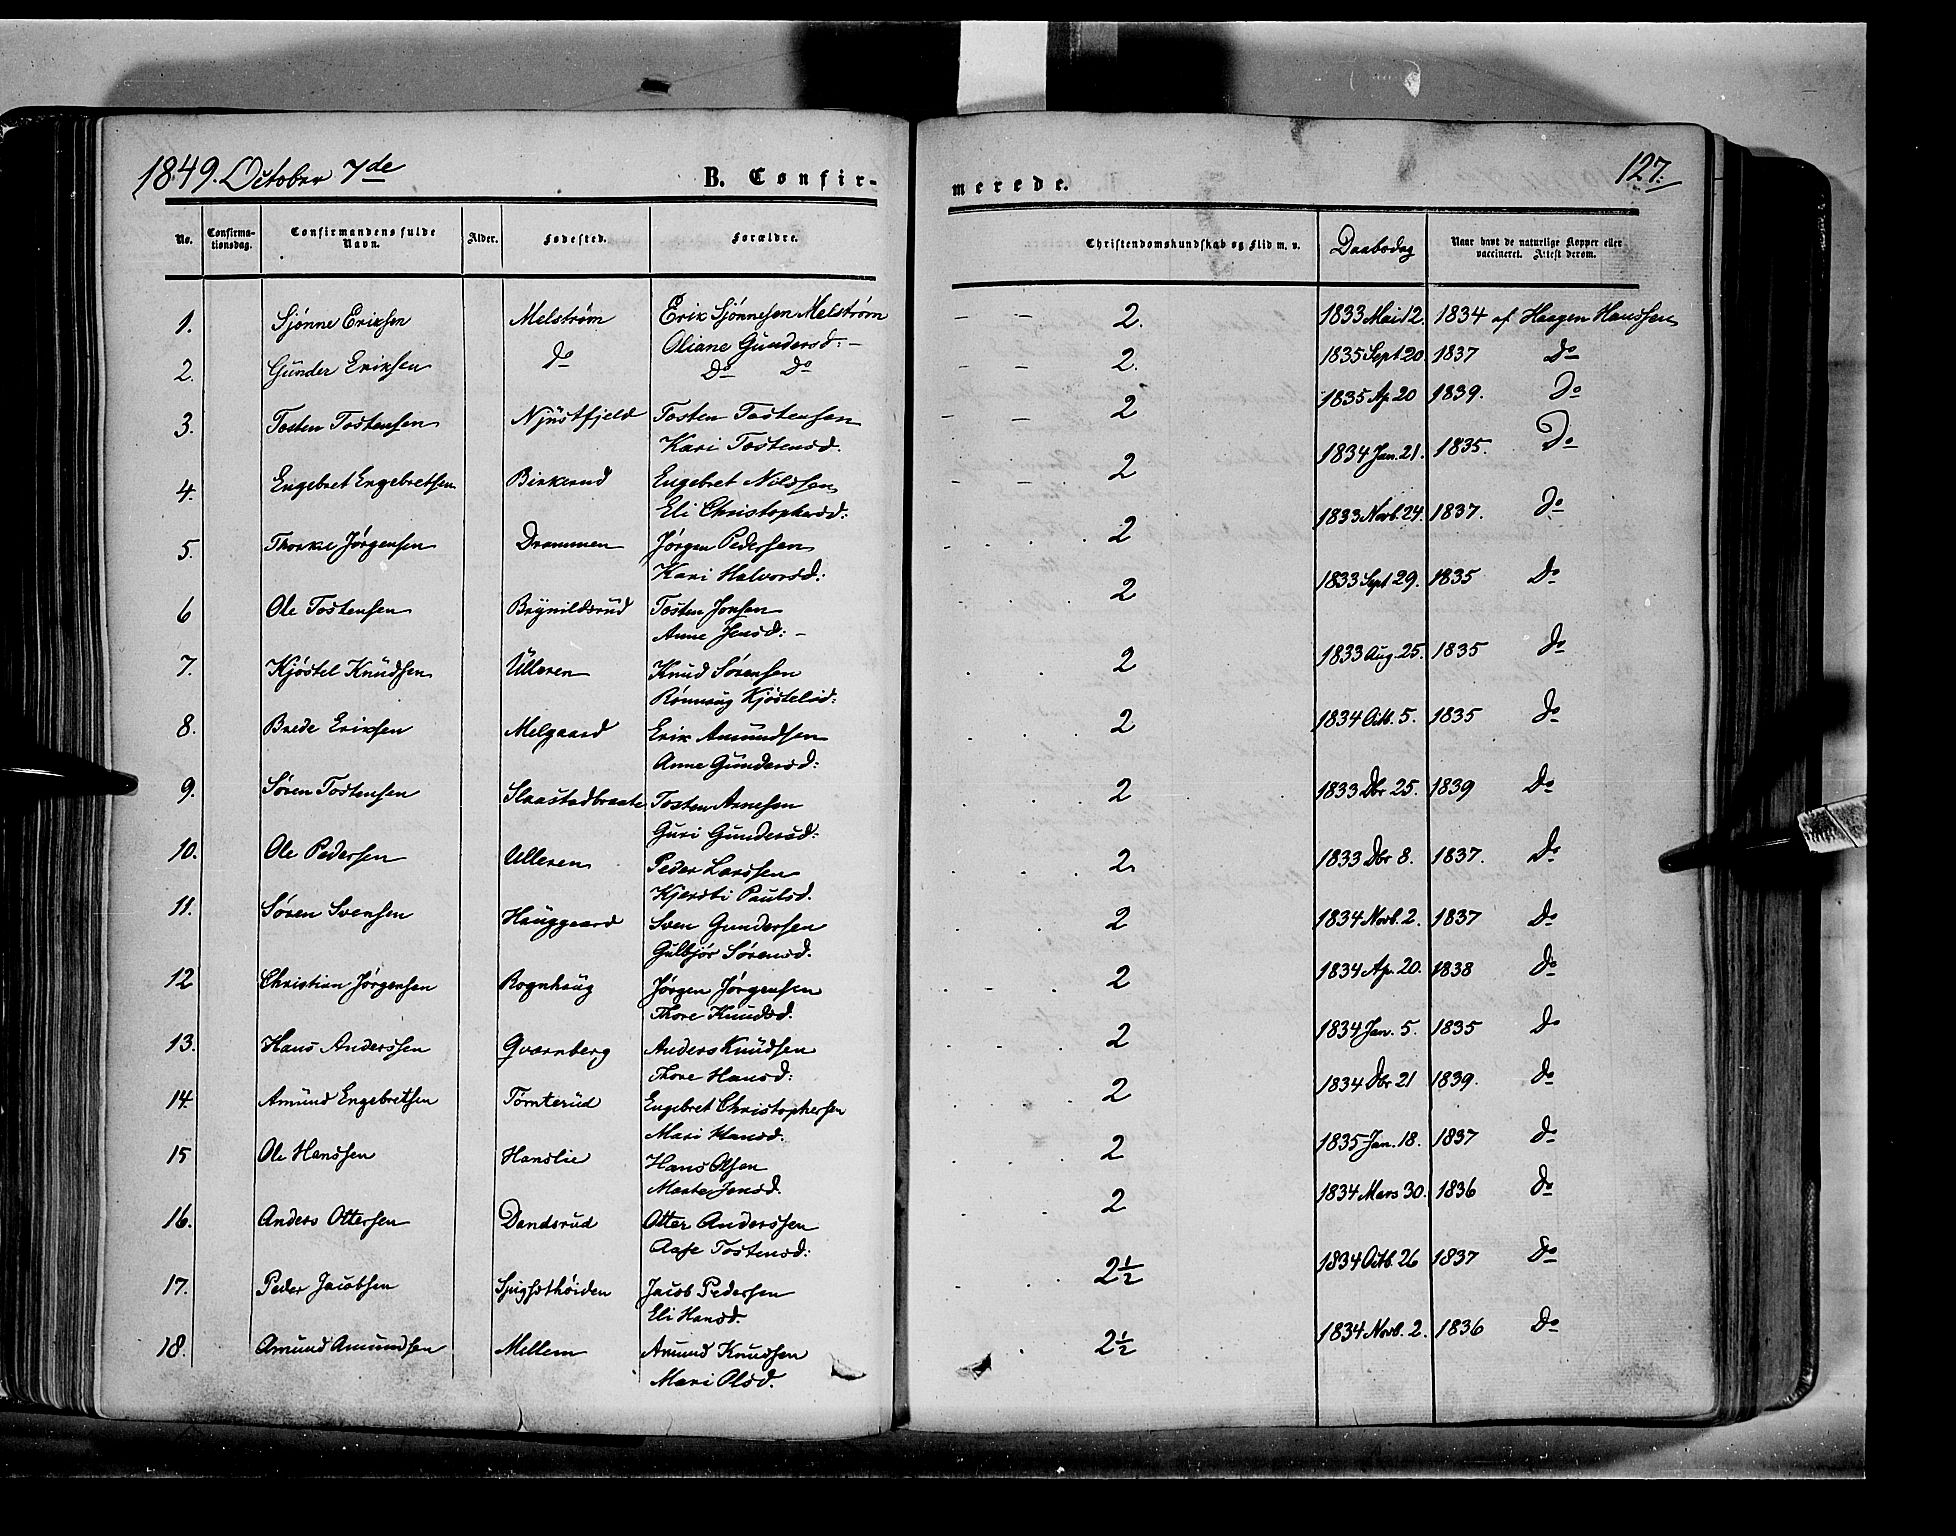 1849. October 7de
B. Confir-
merede.
127.
No. Confirma-tionsdag. Confirmandens fulde Navn. Alder. Fødested. Forældre. Christendomskundskab og Flid m. v. Daabsdag Naar havt de naturlige Kopper eller vaccineret. Attest derom.
1. Sjønne Eriksen Melstrøm Erik Sjønnesen Melstrøm 2. 1833 Mai 12. 1834 af Haagen Hanssen
Oliane Gundersd: -
2. Gunder Eriksen Do Do Do 2. 1835 Sept 20. 1837 Do
3. Tosten Tostensen Njüstfjeld Tosten Tostensen 2 1835 Ap 20 1839. Do
Kari Tostensd.
4. Engebret Engebretsen Birkerud Engebret Nilssen 2 1834 Jan. 21. 1835. Do
Eli Christophersd:
5. Jørgensen Drammen Jørgen Pedersen 2 1833 Novb. 24. 1837. Do
Kari Halvorsd:
6 Ole Tostensen Brynildsrüd Tosten Jensen 2 1833 Sept 29. 1835 Do
Anne Jensd: -
7. Kjøstel Knüdsen Ulleren Knud Sørensen 2 1833 Aug. 25. 1835 Do
Rønnaug Kjøstelsd:
8. Brede Eriksen Melgaard Erik Amundsen 2 1834 Octb. 5. 1835 Do
Anne Gundersd:
9. Søren Tostensen Slaastadbraate Tosten Arnesen 2 1833 Dbr 25. 1839 Do
Guri Gundersd:
10. Ole Pedersen Ulleren Peder Larssen 2 1833 Dbr 8. 1837. Do
Kjersti Paulsd.
11. Søren Svensen Hauggaard Sven Gundersen 2 1834 Novb. 2. 1837 Do
Gulbjør Sørensd.
12 Christian Jørgensen Rognhaug Jørgen Jørgensen 2 1834 Ap. 20. 1838 Do
Thore Knudsd.
13. Hans Anderssen Qvernberg Anders Knüdsen 2 1834 Jan. 5. 1835 Do
Thore Hansd:
14. Amünd Engebretsen Tørnterüd Engebret Christophersen 2 1834 Dbr 21 1839. Do
Mari Hansd.
15 Ole Hanssen Hanslie Hans Olsen 2 1835 Jan. 18. 1837 Do
Marte Jensd.
16. Anders Ottersen Dandsrud Otter Anderssen 2 1834 Mars 30. 1836 Do
Aase Tostensd:
17. Peder Jacobsen Jacob Pedersen 2½ 1834 Octb. 26 1837 Do
Eli Hansd.
18. Amund Amundsen Mellem Amund Knudsen 2½ 1834 Novb. 2. 1836 Do
Mari Olsd.